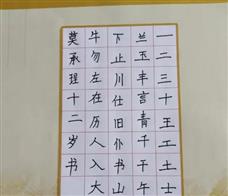 一二三十王工土士
兰玉丰言青千干午
下止川仕旧仆书山
牛勿左在历人入大
莫承珵十二岁书